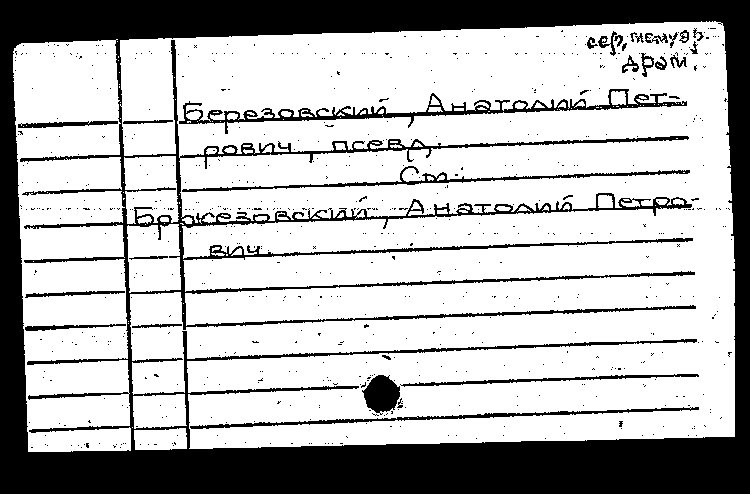 сер, мемуар.
драм.
Березовский, Анатолий Пет-
рович, псевд.
См.:
Бржезовский, Анатолий Петро-
вич.